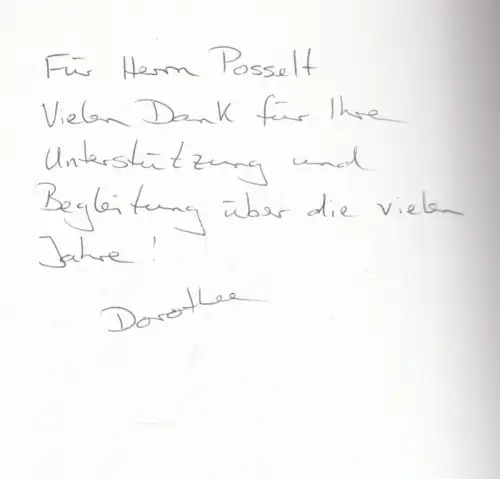 Für Herrn Posselt
Vielen Dank für Ihre
Unterstützung und
Begleitung über die vielen
Jahre!
Dorothee